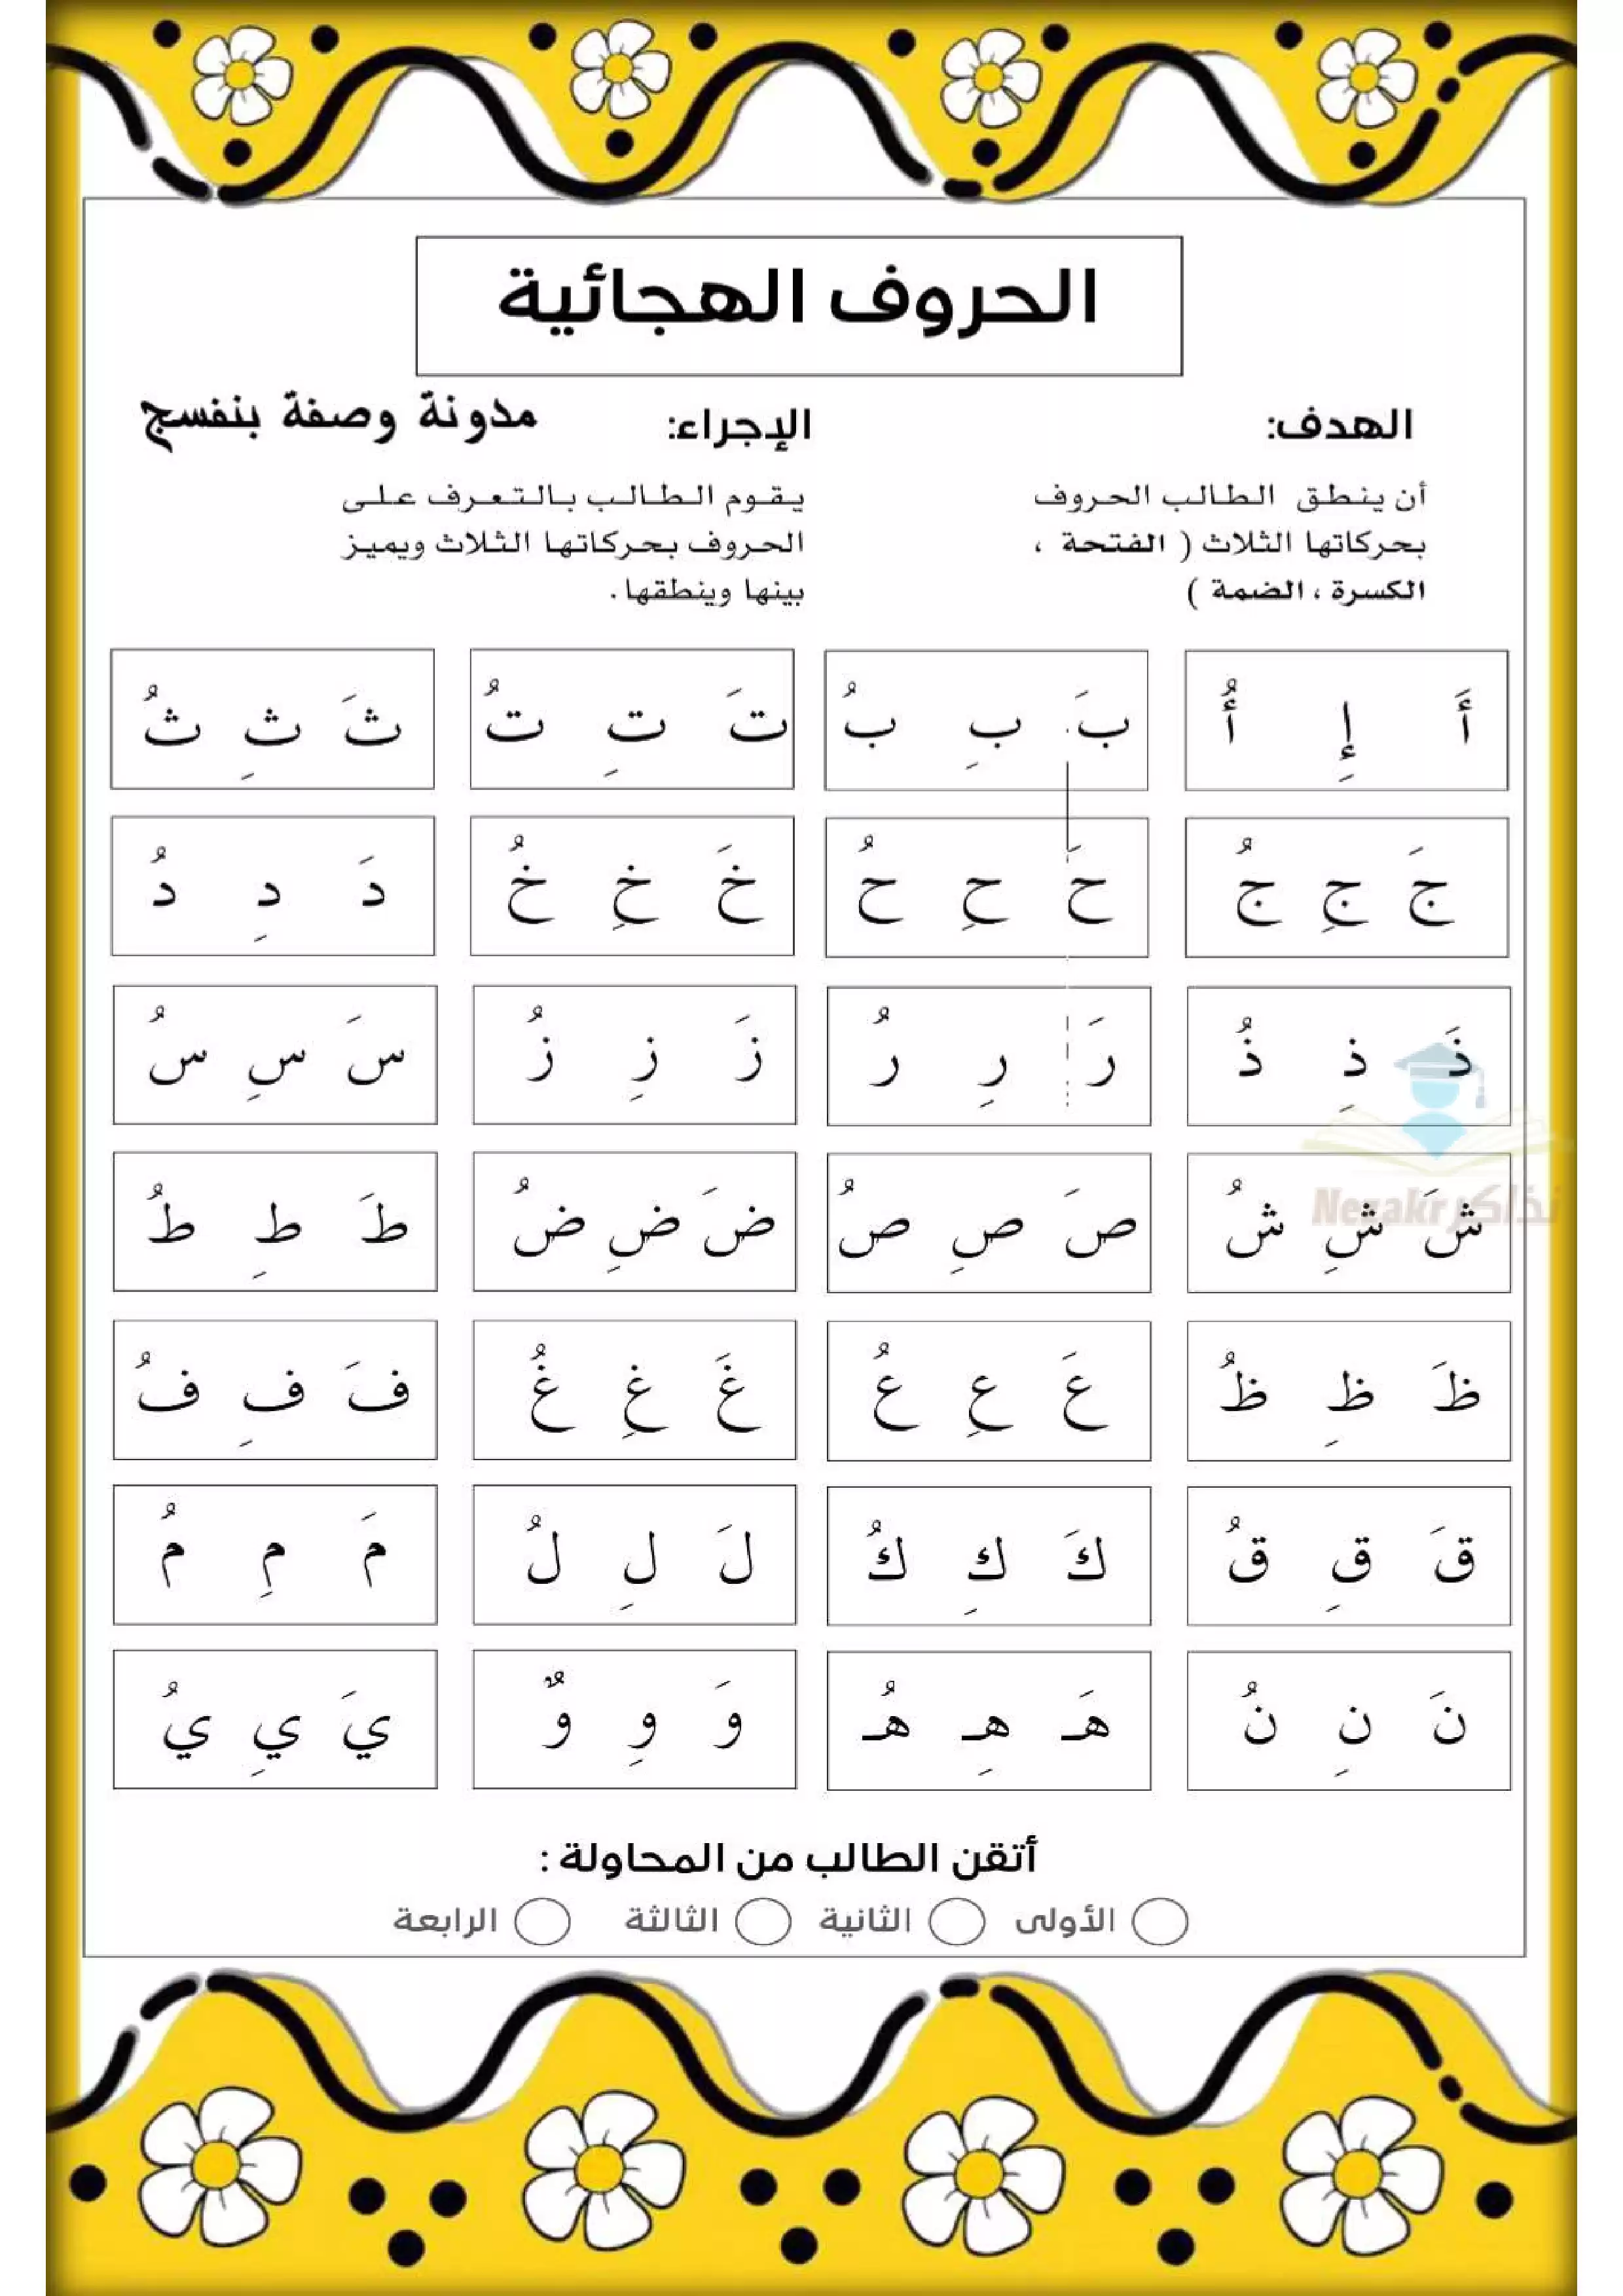 الحروف الهجائية
الهدف:
أن ينطق الطالب الحروف
بحركاتها الثلاث ( الفتحة ،
الكسرة ، الضمة )
الإجراء:
يقوم الطالب بالتعرف على
الحروف بحركاتها الثلاث ويميز
بينها وينطقها .
مدونة وصفة بنفسج
أَ إِ أُ
بَ بِ بُ
تَ تِ تُ
ثَ ثِ ثُ
جَ جِ جُ
حَ حِ حُ
خَ خِ خُ
دَ دِ دُ
ذَ ذِ ذُ
رَ رِ رُ
زَ زِ زُ
سَ سِ سُ
نذاكر Nezakr
شَ شِ شُ
صَ صِ صُ
ضَ ضِ ضُ
طَ طِ طُ
ظَ ظِ ظُ
عَ عِ عُ
غَ غِ غُ
فَ فِ فُ
قَ قِ قُ
كَ كِ كُ
لَ لِ لُ
مَ مِ مُ
نَ نِ نُ
هَـ هِـ هُـ
وَ وِ وٌ
يَ يِ يُ
أتقن الطالب من المحاولة :
الأولى الثانية الثالثة الرابعة